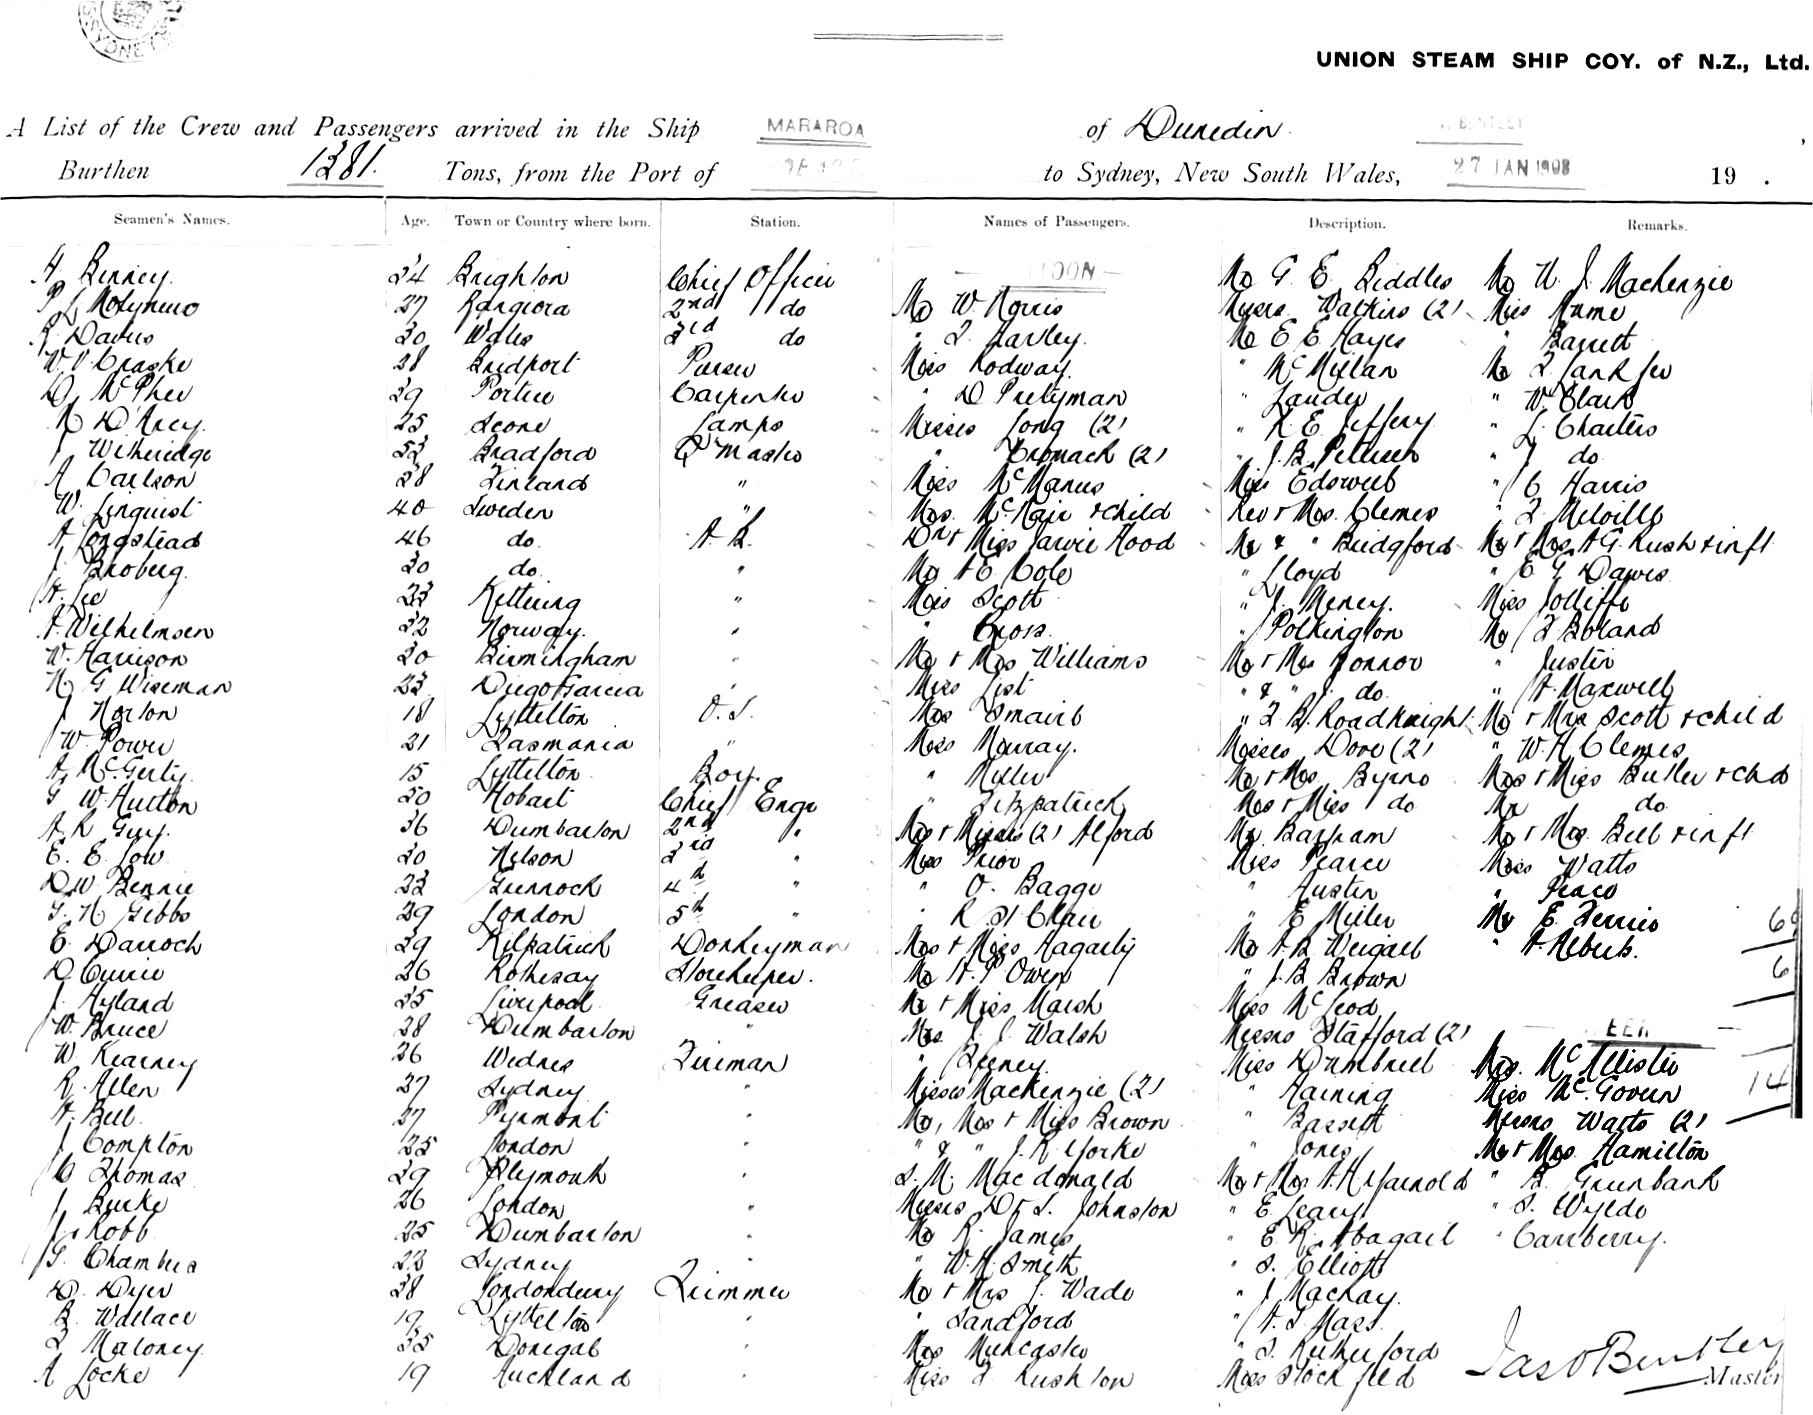 SYDNEY
UNION STEAM SHIP COY. of N.Z., Ltd.
A List of the Crew and Passengers arrived in the Ship MARAROA of Dunedin. BENTLEY
Burthen 1381. Tons, from the Port of to Sydney, New South Wales, 27 JAN 1908 19 .
Seamen's Names. Age. Town or Country where born. Station. Names of Passengers. Description. Remarks.
H Binney. 34 Brighton Chief Officer Mr G. E. Biddles Mr W. J. Mackenzie
P L Molyneux 27 Rangiora 2nd do Mr W. Norris Messrs Watkins (2) Miss Hume
R. Davies 30 Wales 3rd do " F. Harley. Mr E E Hayes " Barrett
W. V Craske 28 Bridport Purser Miss Rodway. " McMillan Mr
D McPhee 39 Portree Carpenter " D Pretyman " Lauder " W. Clark
N D'Arcy. 25 Scone Lamps Misses Long (2) " R E Jeffery " L. Charters
J Witheridge 53 Bradford Q Master " Cromack (2) " J. B. " J do
A Carlson 38 Finland " Miss McManus Miss C Harris
W. Linquist 40 Sweden " Mrs. McNair & child Rev & Mrs. Clemes " F. Melville
A Longstiad 46 do. A. B. Dr & Miss Jarvie Hood Mr & " Budgford Mr & Mrs A G. Rush & inft
J Broberg. 30 do. " Mr A E. Cole " Lloyd " E G Davis
H. Lee 23 Kettering " Miss Scott " J. Meney. Miss Jolliffe
A Wilhelmsen 32 Norway. " " Cross. " Polkington Mr F Boland
W. Harrison 30 Birmingham " Mr & Mrs Williams Mr & Mrs Connor " Justin
N. G Wiseman 23 Diego Garcia " Miss List " & " J. do. " A. Maxwell
J Norton 18 Lyttelton O. S. Mrs Smairl " F. B. Roadknight Mr & Mrs Scott & child
W. Power 21 Tasmania " Miss Murray. Misses Dove (2) " W. H Clemes
A McGerty. 15 Lyttelton Boy. " Miller Mr & Mrs Byrne Mrs & Miss Butler & chd
G W. Hutton 50 Hobart Chief Engr " Fitzpatrick Mrs & Miss do Mr do.
A R Guy. 36 Dumbarton 2nd " Mrs & Misses (2) Alford Mr. Barham Mr & Mrs. Bell & inft
E. E. Low 30 Nelson 3rd " Miss Prior Miss Pearce Miss Watts
D W Bennie 23 Greenock 4th " " O. Bagge " Austin " Peace
G. H Gibbs 29 London 5th " " R St Clair " E Miller Mr E Ferrier
E. Darroch 29 Kilpatrick Donkeyman Mrs & Miss Hagarty Mr A. B. Weigall " A Alberts.
D Currie 26 Rothesay Storekeeper. Mr H. P Owen " J. B Brown 6
J. Hyland 35 Liverpool Greaser Mr & Miss Marsh Miss McLeod
W. Bruce 38 Dumbarton " Mrs J. J Walsh Messrs Stafford (2)
W Kearney 26 Widnes Fireman " Feeney. Miss Dumbrell Mrs. McAllister
R. Allen 37 Sydney " Misses Mackenzie (2) " Haining Miss McGovern 14
H. Bell 37 Pyrmont " Mr, Mrs & Miss Brown " Bassett Messrs Watts (2)
J Compton 25 London " " & " J. R Yorke " Jones Mr & Mrs. Hamilton
C Thomas 29 Plymouth " S. M. Macdonald Mr & Mrs A. H Yarnold " B. Greenbank
J Burke 26 London " Messrs D & S. Johnston " E Leary " S. Wylde
J. Robb 25 Dumbarton " Mr R. James " E R. Abagail " Canberry.
G. Chambers 22 Sydney " " W. H Smith " S. Elliott
D. Dyer 38 Londonderry Trimmer Mr & Mrs J. Wade " J Mackay.
B. Wallace 19 Lyttelton " " Sandford " A. S. Mass
F Maloney 35 Donegal " Mrs Muncaster " S. Rutherford
A Locke 19 Auckland " Miss Rushton Miss Stockfeld
Jas Bentley
Master